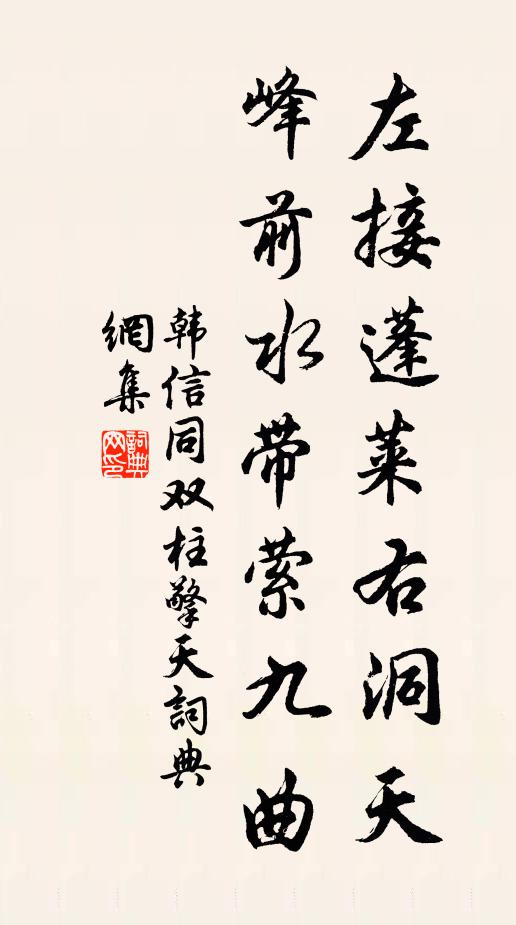 左接蓬莱右洞天
峰前水带萦九曲
韩信同双柱擎天詞典
網集
詞典
网印